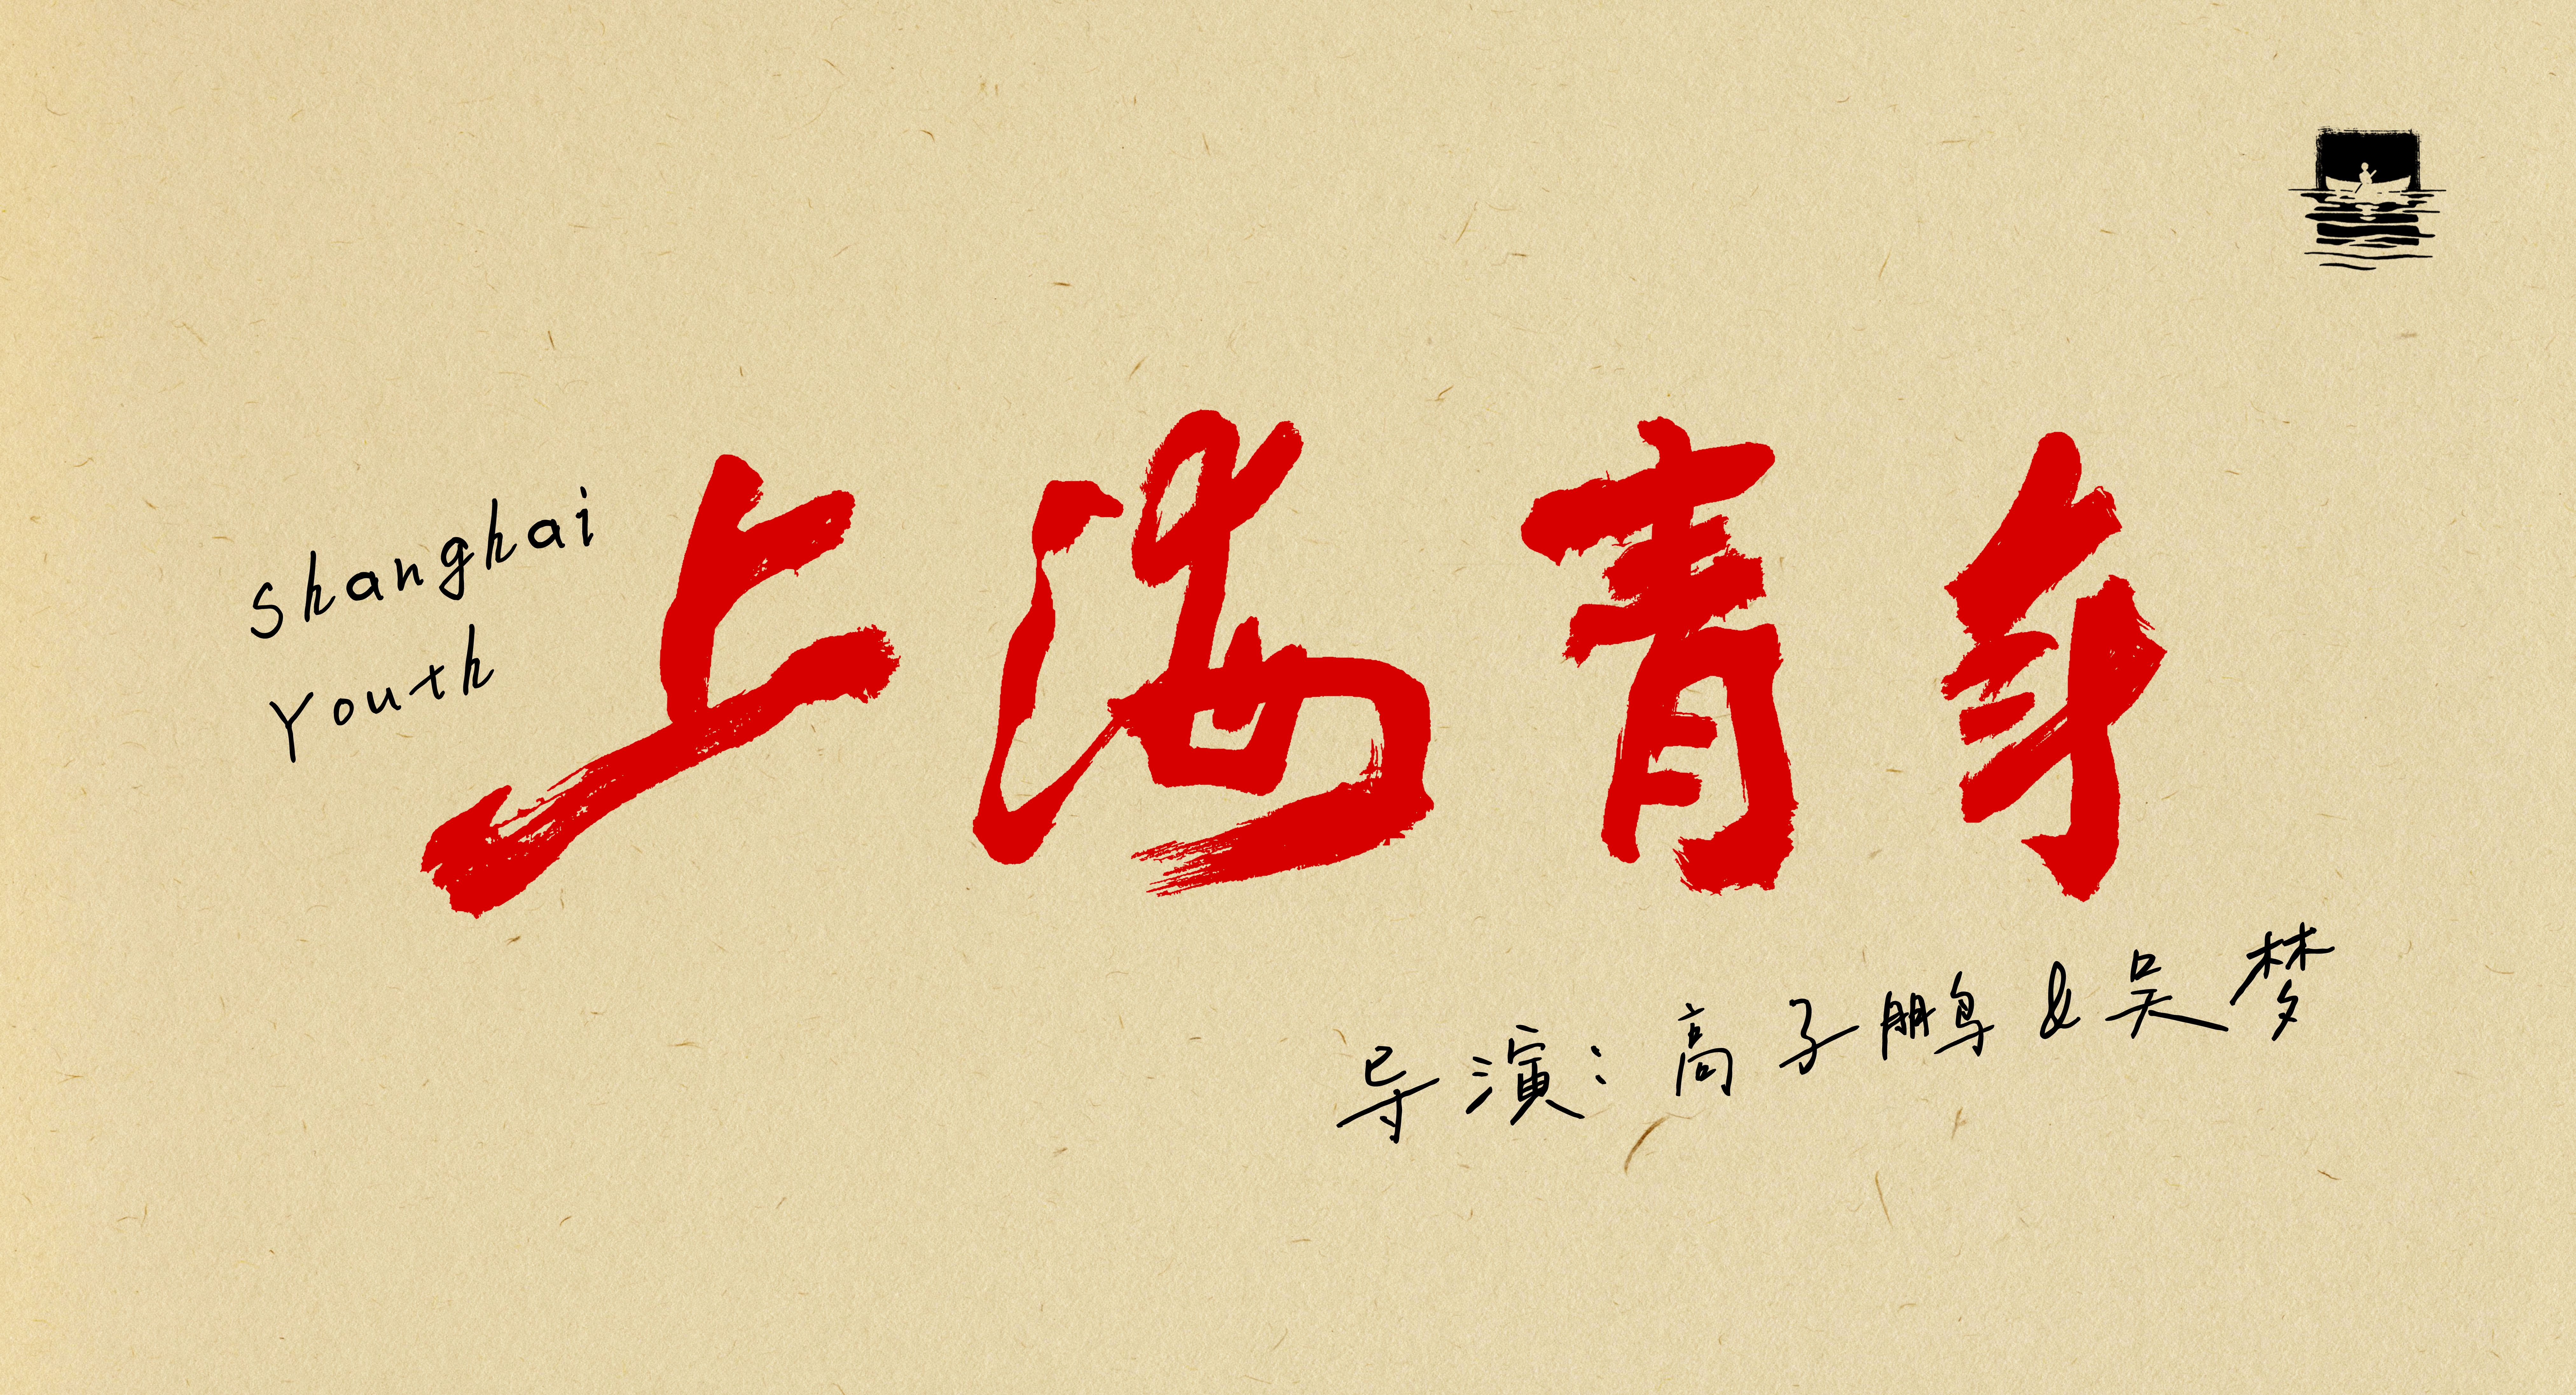 Shanghai
Youth
上海青年
导演：高子鹏&吴梦